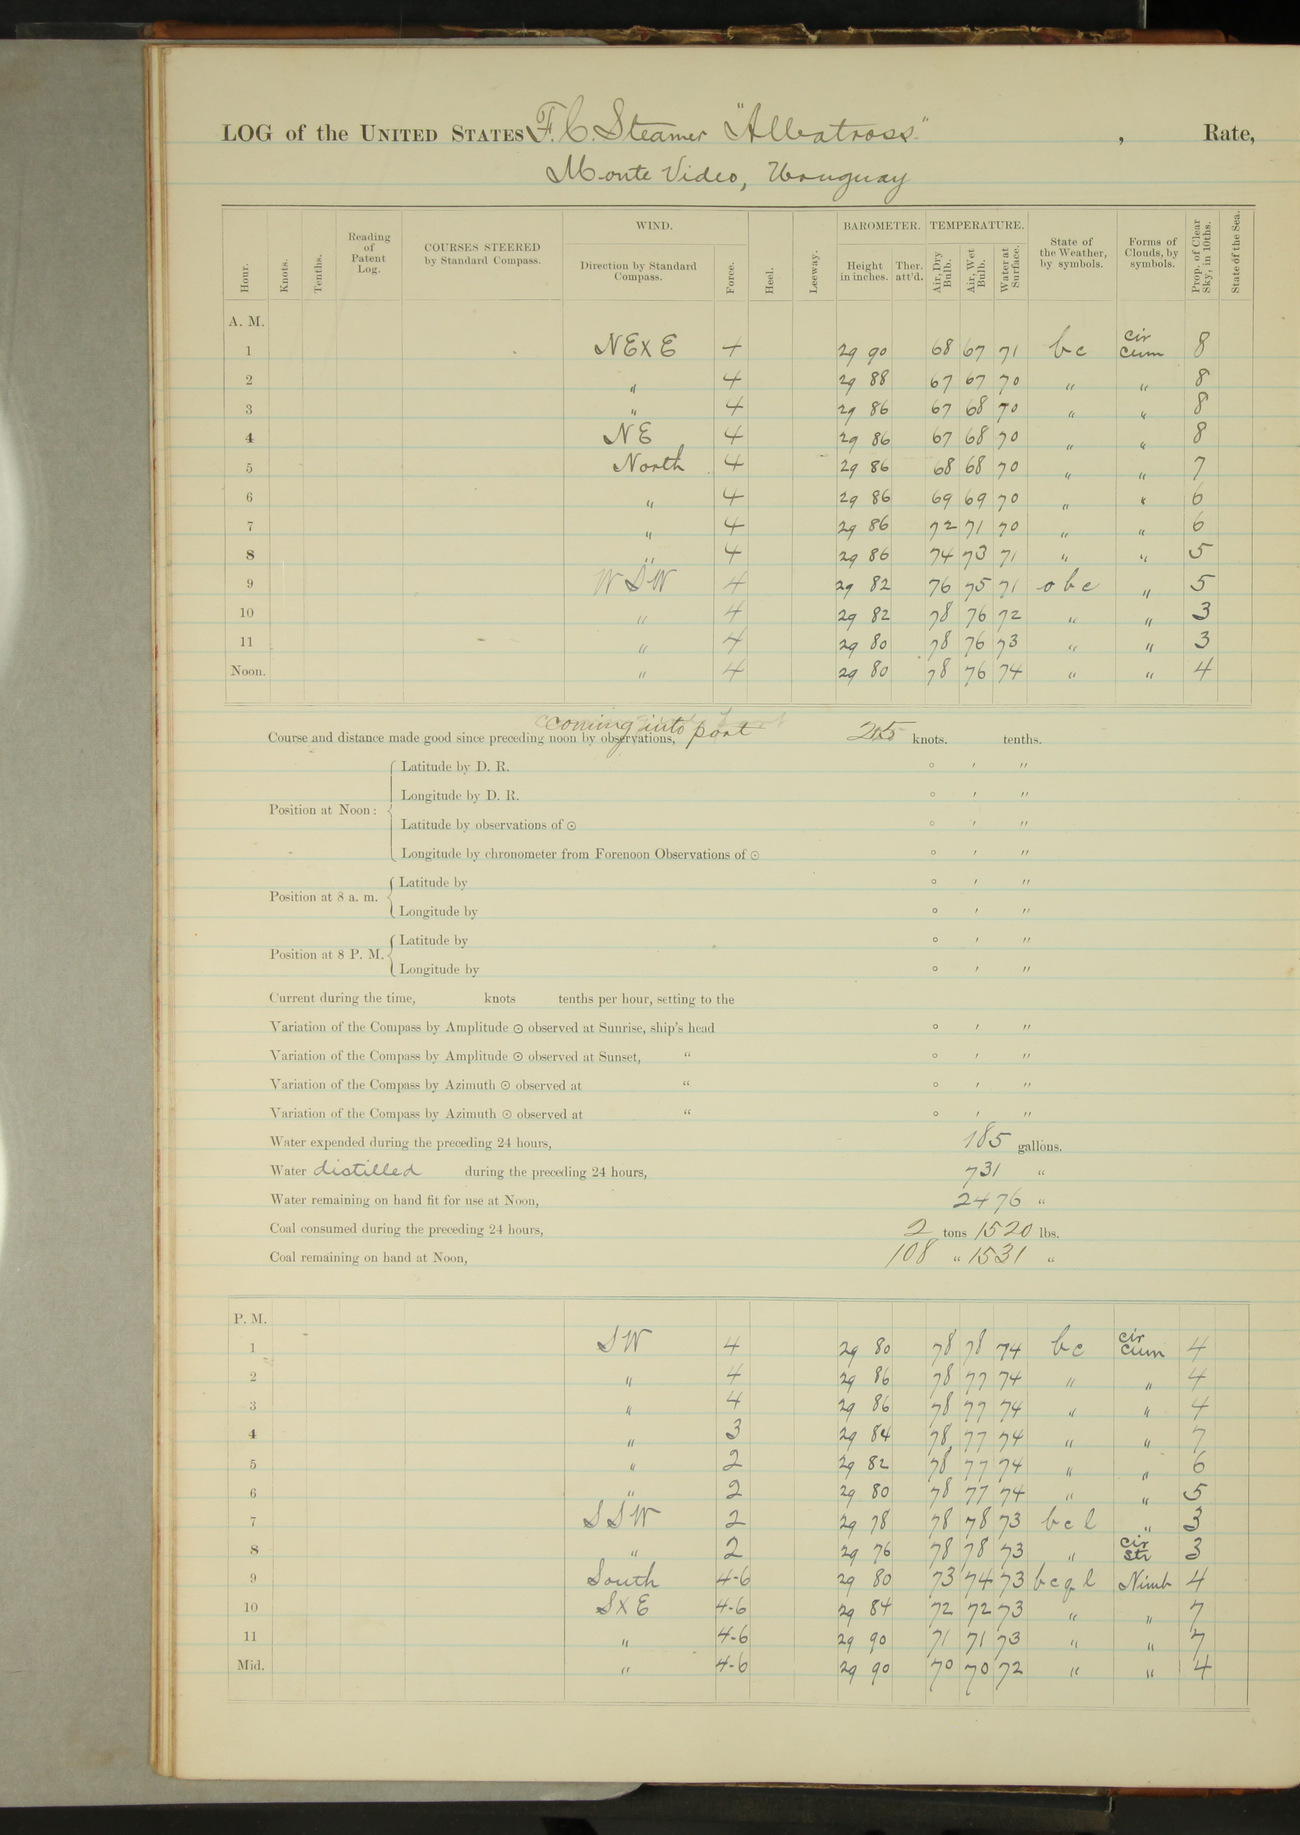 LOG of the UNITED STATES F. C. Steamer "Albatross" , Rate,
Monte Video, Uruguay
Hour. Knots. Tenths. Reading of Patent Log. COURSES STEERED by Standard Compass. WIND. Direction by Standard Compass. Force. Heel. Leeway. BAROMETER. Height in inches. Ther. att'd. TEMPERATURE. Air, Dry Bulb. Air, Wet Bulb. Water at Surface. State of the Weather, by symbols. Forms of Clouds, by symbols. Prop. of Clear Sky, in 10ths. State of the Sea.
A. M.
1 NExE 4 29 90 68 67 71 bc cir cum 8
2 " 4 29 88 67 67 70 " " 8
3 " 4 29 86 67 68 70 " " 8
4 NE 4 29 86 67 68 70 " " 8
5 North 4 29 86 68 68 70 " " 7
6 " 4 29 86 69 69 70 " " 6
7 " 4 29 86 72 71 70 " " 6
8 " 4 29 86 74 73 71 " " 5
9 WSW 4 29 82 76 75 71 obc " 5
10 " 4 29 82 78 76 72 " " 3
11 " 4 29 80 78 76 73 " " 3
Noon. " 4 29 80 78 76 74 " " 4
Course and distance made good since preceding noon by observations, coming into port knots. tenths.
Position at Noon: Latitude by D. R. ° ′ ″
Longitude by D. R. ° ′ ″
Latitude by observations of ☉ ° ′ ″
Longitude by chronometer from Forenoon Observations of ☉ ° ′ ″
Position at 8 a. m. Latitude by ° ′ ″
Longitude by ° ′ ″
Position at 8 P. M. Latitude by ° ′ ″
Longitude by ° ′ ″
Current during the time, knots tenths per hour, setting to the
Variation of the Compass by Amplitude ☉ observed at Sunrise, ship's head ° ′ ″
Variation of the Compass by Amplitude ☉ observed at Sunset, " ° ′ ″
Variation of the Compass by Azimuth ☉ observed at " ° ′ ″
Variation of the Compass by Azimuth ☉ observed at " ° ′ ″
Water expended during the preceding 24 hours, 185 gallons.
Water distilled during the preceding 24 hours, 731 "
Water remaining on hand fit for use at Noon, 2476 "
Coal consumed during the preceding 24 hours, 2 tons 1520 lbs.
Coal remaining on hand at Noon, 108 " 1531 "
P. M.
1 SW 4 29 80 78 78 74 bc cir cum 4
2 " 4 29 86 78 77 74 " " 4
3 " 4 29 86 78 77 74 " " 4
4 " 3 29 84 78 77 74 " " 7
5 " 2 29 82 78 77 74 " " 6
6 " 2 29 80 78 77 74 " " 5
7 SSW 2 29 78 78 78 73 bcl " 3
8 " 2 29 76 78 78 73 " cir str 3
9 South 4-6 29 80 73 74 73 bcql Nimb 4
10 SxE 4-6 29 84 72 72 73 " " 7
11 " 4-6 29 90 71 71 73 " " 7
Mid. " 4-6 29 90 70 70 72 " " 4